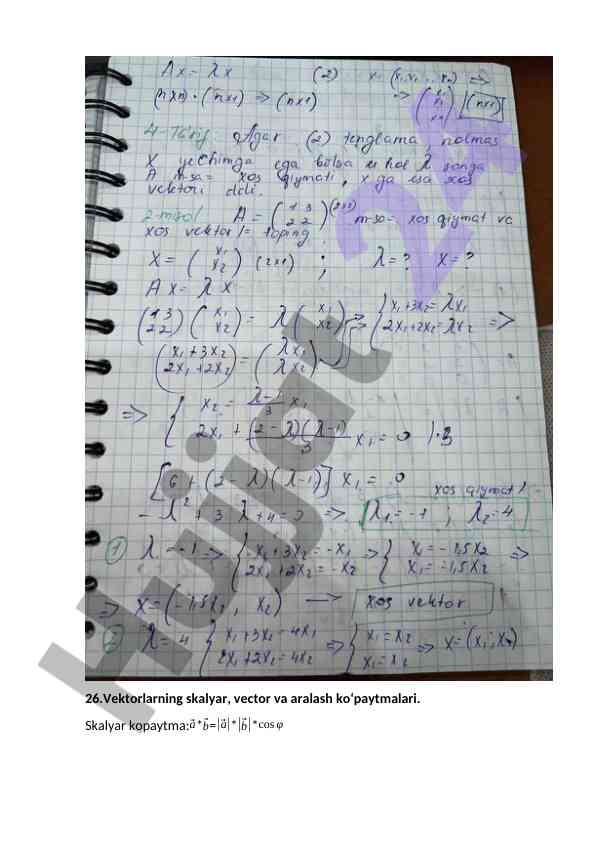 Ax = λx (2) x = (x₁ x₂ ... xₙ) =>
(n×n) · (n×1) => (n×1) => (x₁ x₂ xₙ) (n×1)
4-Ta'rif. Agar (2) tenglama, nolmas
X yechimga ega bo'lsa u hol λ songa
A m-sa= xos qiymati, x ga esa xos
vektori deb.
2-misol A = (1 3 2 2) (2×2) m-sa= xos qiymat va
xos vektor/= toping.
X = (x₁ x₂) (2×1) ; λ = ? X = ?
A X = λ X
(1 3 2 2) (x₁ x₂) = λ (x₁ x₂) => { x₁ + 3x₂ = λx₁
2x₁ + 2x₂ = λx₂ =>
(x₁ + 3x₂ 2x₁ + 2x₂) = (λx₁ λx₂)
=> { x₂ = λ-1/3 x₁
2x₁ + (2-λ)(λ-1)/3 x₁ = 0 |·3
[6 + (2-λ)(λ-1)] x₁ = 0
xos qiymat
-λ² + 3λ + 4 = 0 => λ₁ = -1 ; λ₂ = 4
1 λ = -1 => { x₁ + 3x₂ = -x₁ => { x₁ = -1,5x₂ =>
2x₁ + 2x₂ = -x₂ x₁ = -1,5x₂
=> X = (-1,5x₂, x₂) → xos vektor
2 λ = 4 { x₁ + 3x₂ = 4x₁ => { x₁ = x₂ => X = (x₁, x₁)
2x₁ + 2x₂ = 4x₂ x₁ = x₂
Hujjat 24
26.Vektorlarning skalyar, vector va aralash ko‘paytmalari.
Skalyar kopaytma: a⃗*b⃗=|a⃗|*|b⃗|*cos φ